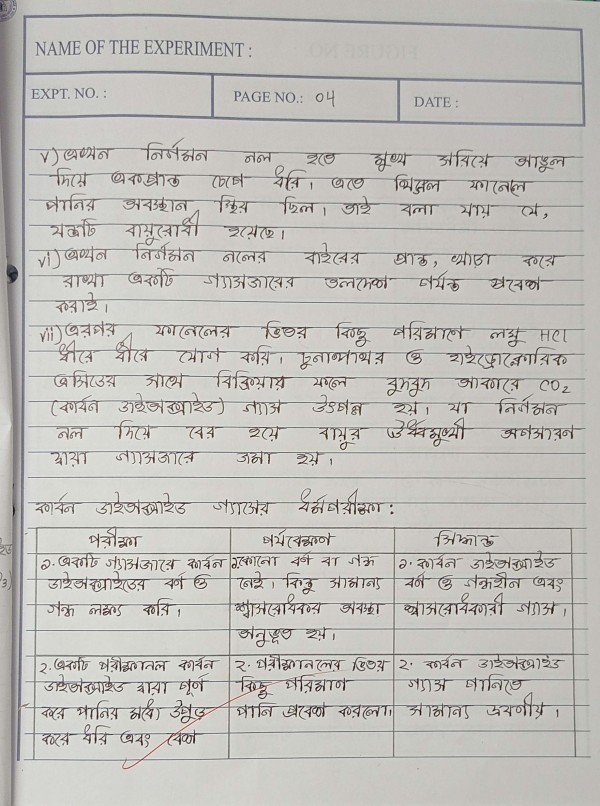 NAME OF THE EXPERIMENT :
EXPT. NO. :
PAGE NO.: 04
DATE :
v) এখন নির্গমন নল হতে মুখ সরিয়ে আঙুল
দিয়ে একপ্রান্ত চেপে ধরি। এতে থিসল ফানেলে
পানির অবস্থান স্থির ছিল। তাই বলা যায় যে,
যন্ত্রটি বায়ুরোধী হয়েছে।
vi) এখন নির্গমন নলের বাইরের প্রান্ত, খাড়া করে
রাখা একটি গ্যাসজারের তলদেশ পর্যন্ত প্রবেশ
করাই।
vii) এরপর ফানেলের ভিতর কিছু পরিমাণে লঘু HCl
ধীরে ধীরে যোগ করি। চুনাপাথর ও হাইড্রোক্লোরিক
এসিডের সাথে বিক্রিয়ার ফলে বুদবুদ আকারে CO₂
(কার্বন ডাইঅক্সাইড) গ্যাস উৎপন্ন হয়। যা নির্গমন
নল দিয়ে বের হয়ে বায়ুর উর্ধ্বমুখী অপসারন
দ্বারা গ্যাসজারে জমা হয়।
কার্বন ডাইঅক্সাইড গ্যাসের ধর্মপরীক্ষা :
পরীক্ষা পর্যবেক্ষণ সিদ্ধান্ত
১. একটি গ্যাসজারে কার্বন ১. কোনো বর্ণ বা গন্ধ ১. কার্বন ডাইঅক্সাইড
ডাইঅক্সাইডের বর্ণ ও নেই। কিন্তু সামান্য বর্ণ ও গন্ধহীন এবং
গন্ধ লক্ষ্য করি। শ্বাসরোধকর অবস্থা শ্বাসরোধকারী গ্যাস।
অনুভূত হয়।
২. একটি পরীক্ষানল কার্বন ২. পরীক্ষানলের ভিতর ২. কার্বন ডাইঅক্সাইড
ডাইঅক্সাইড দ্বারা পূর্ণ কিছু পরিমাণ গ্যাস পানিতে
করে পানির মধ্যে উপুড় পানি প্রবেশ করলো। সামান্য দ্রবণীয়।
করে ধরি এবং বেশ